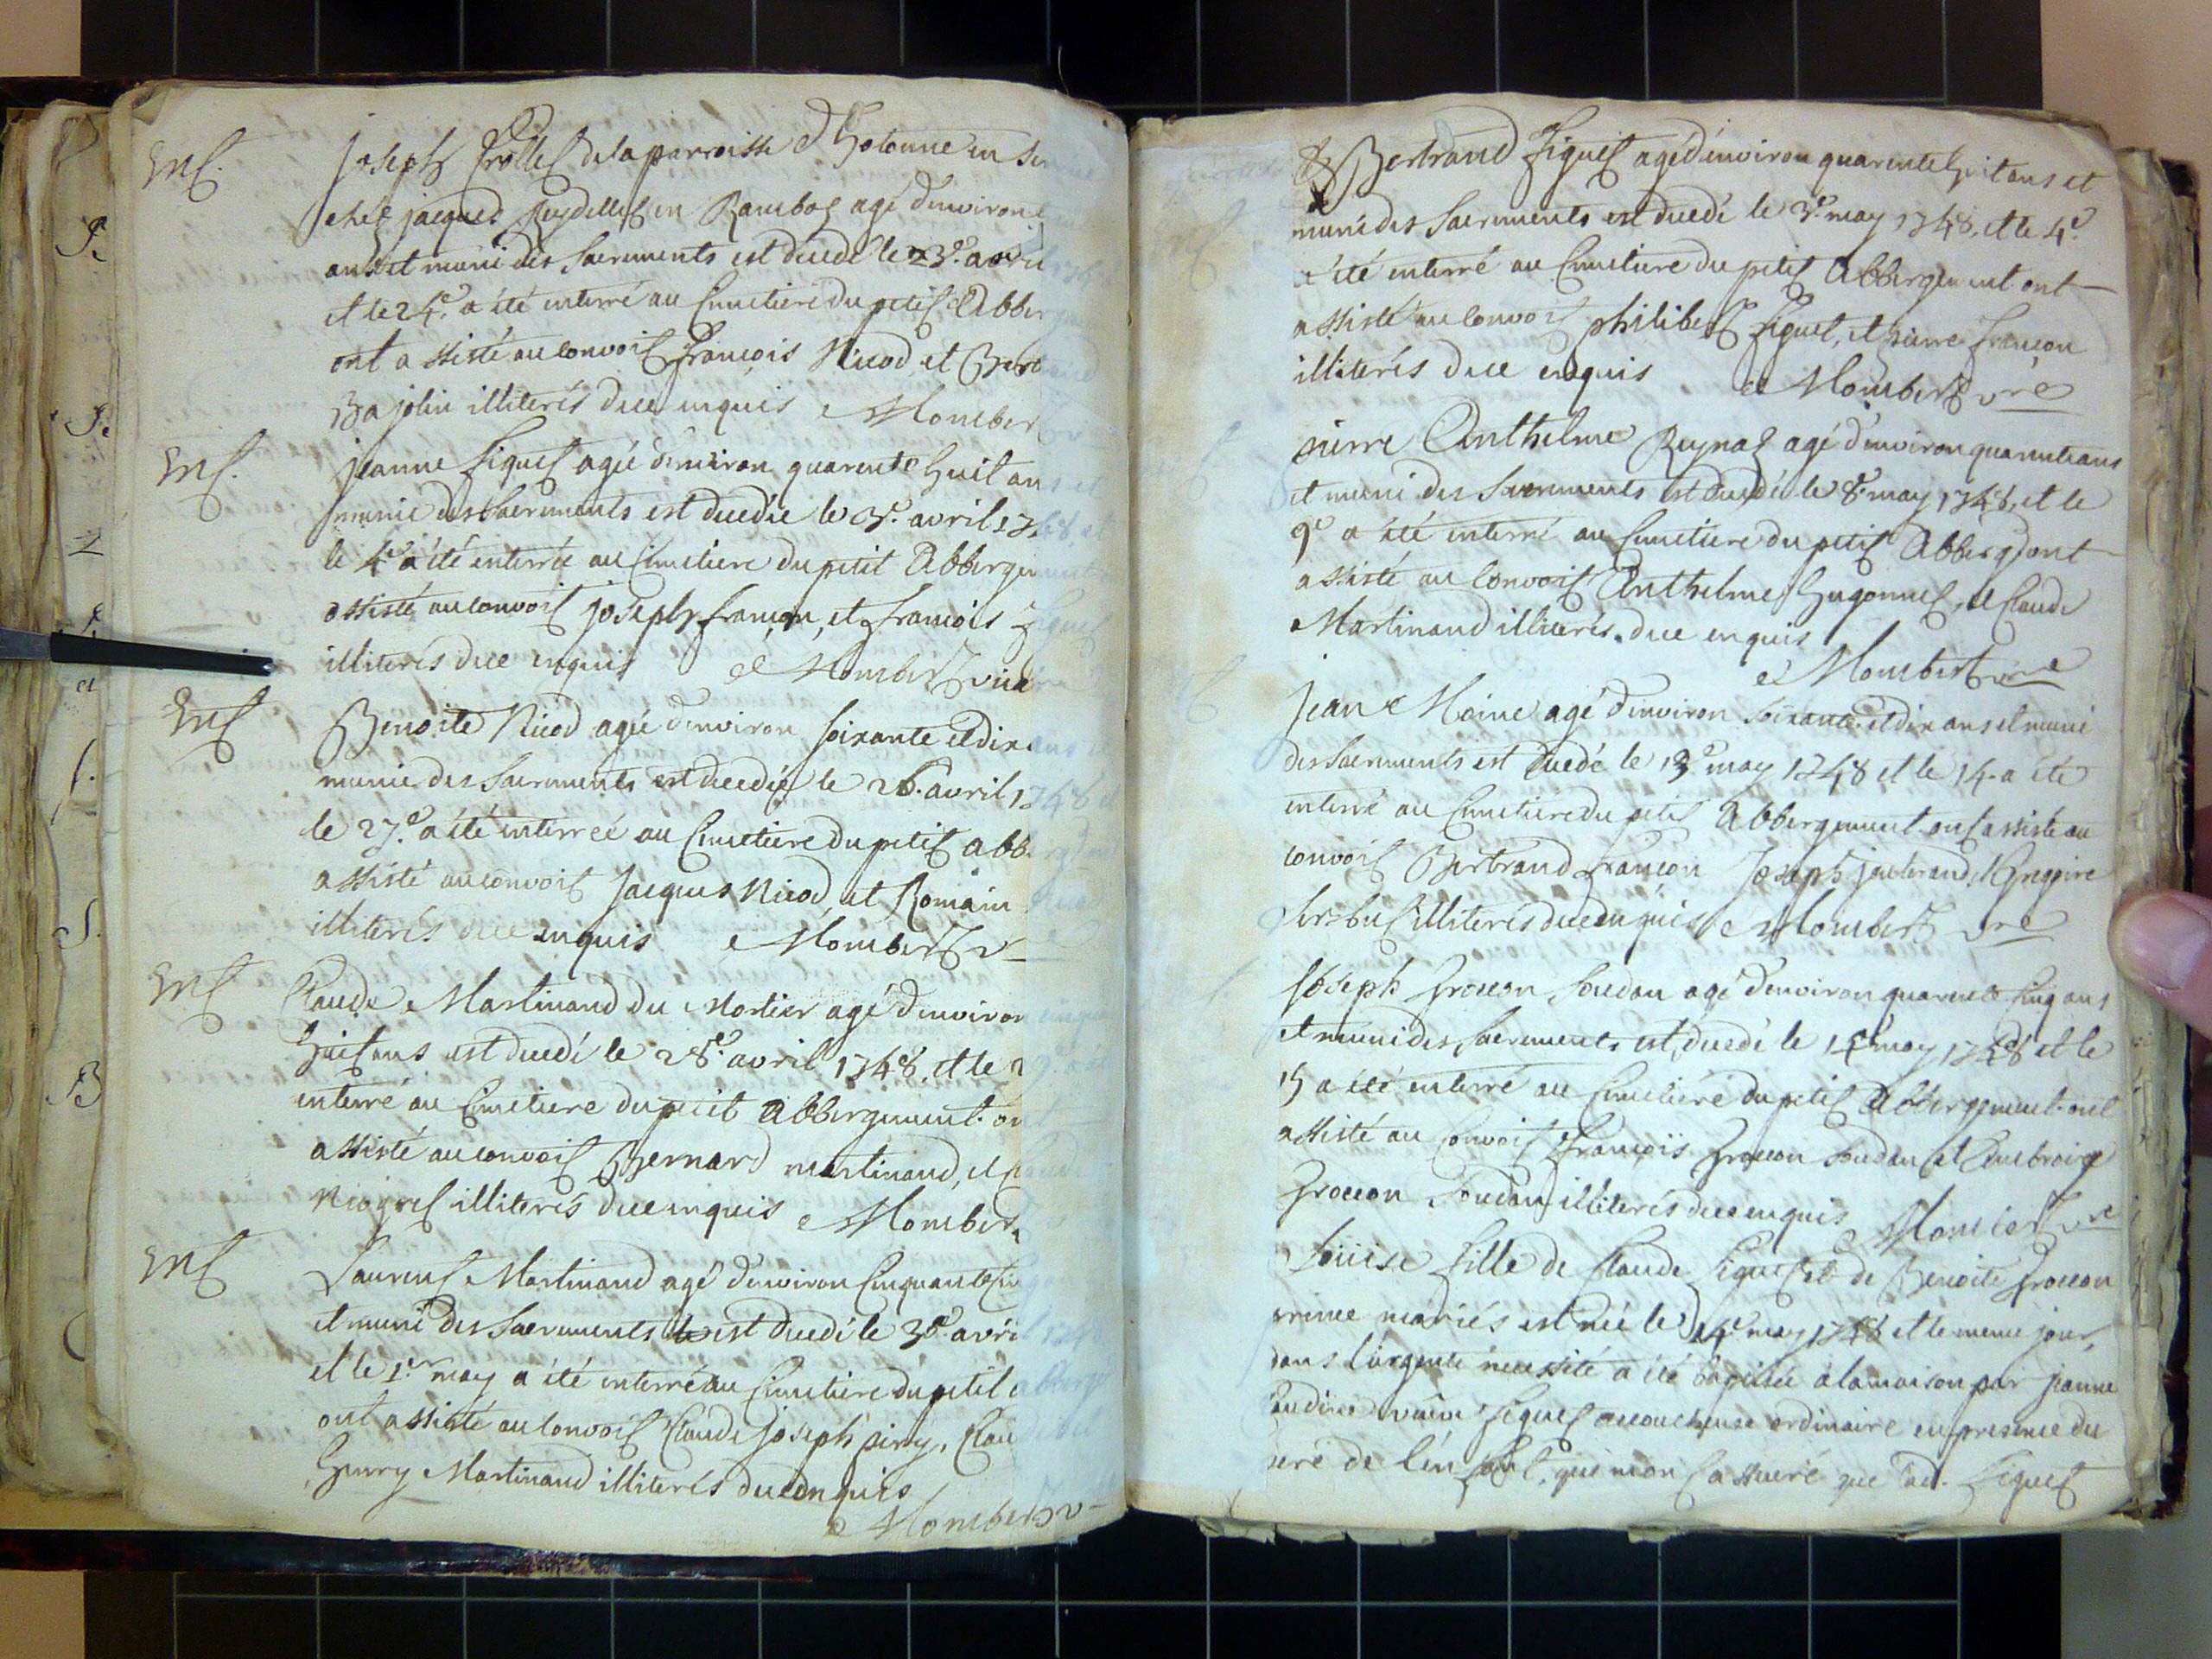 mt. Joseph Frollet de la parroisse d'Hotonne en ser
chez jacques Reydellet en Rambos agé d'environ
ans et muni des Sacrements est decedé le 23e. avril
et le 24e. a été interré au Cimetiere du petit Abber
ont assisté au convoit François Nicod, et Bert
Bajolin illiterés de ce enquis Mombert
mt. jeanne Figuet agée d'environ quarente huit ans et
munie des Sacrements est decedée le 3e. avril 1748, et
le 4e a été enterrée au Cimetiere du petit Abbergement
assisté au convoit joseph françon, et francois Figuet
illiterés de ce enquis Mombert vicaire
mt Benoite Nicod agée d'environ soixante et dix ans et
munie des Sacrements est decedée le 26. avril 1748 et
le 27.e a été interreé au Cimetiere du petit abbergt ont
assisté au convoit Jacques Nicod, et Romain Nicod
illiterés de ce enquis Mombert v
mt Claude Martinand du Mortier agé d'environ cinquante
huit ans est decedé le 28e. avril 1748, et le 29e a été
interré au Cimetiere du petit Abbergement ont
assisté au convoit Bernard martinand, et Claude
Niogret illiterés de ce enquis Mombert
mt Laurent Martinand agé d'environ Cinquante
et muni des Sacrements est decedé le 30e. avril 1748
et le 1er may a été interré au Cimetiere du petit abberget
ont assisté au convoit Claude joseph piry, Claude
henry Martinand illiterés de ce enquis
Mombert v
Bertrand Figuet agé d'environ quarente huit ans et
muni des Sacrements est decedé le 3e. may 1748, et le 4e.
a été interré au Cimetiere du petit Abbergement ont
assisté au convoit philibert Figuet, et pierre françon
illiterés de ce enquis Mombert vre
pierre Anthelme Reynaz agé d'environ quarente ans
et muni des Sacrements est decedé le 8e. may 1748, et le
9e a été interré au Cimetiere du petit Abbergt ont
assisté au Convoit Anthelme Hugonnet, et Claude
Martinand illiterés de ce enquis
Mombert vre
Jean Moine agé d'environ soixante et dix ans et muni
des Sacrements est decedé le 13e may 1748 et le 14. a été
interré au Cimetiere du petit Abbergement ont assisté au
convoit Bertrand françon Joseph jenterand, et Gregoire
illiterés de ce enquis Mombert vre
Joseph Groscon Soudan agé d'environ quarente Cinq ans
et muni des Sacrements est decedé le 14e may 1748 et le
15 a été enterré au Cimetiére du petit Abbergement ont
assisté au Convoit François Groscon Soudan et Ambroise
Groscon Soudan illiterés de ce enquis Mombert vre
Loüise fille de Claude Figuet et de Benoite Groscon
prince mariés est née le 14e may 1748 et le meme jour,
dans l'urgente necessité a été baptisée a la maison par jeanne
veuve Figuet accoucheuse ordinaire en presence du
pere de l'enfant, qui m'ont assuré que lad. Figuet